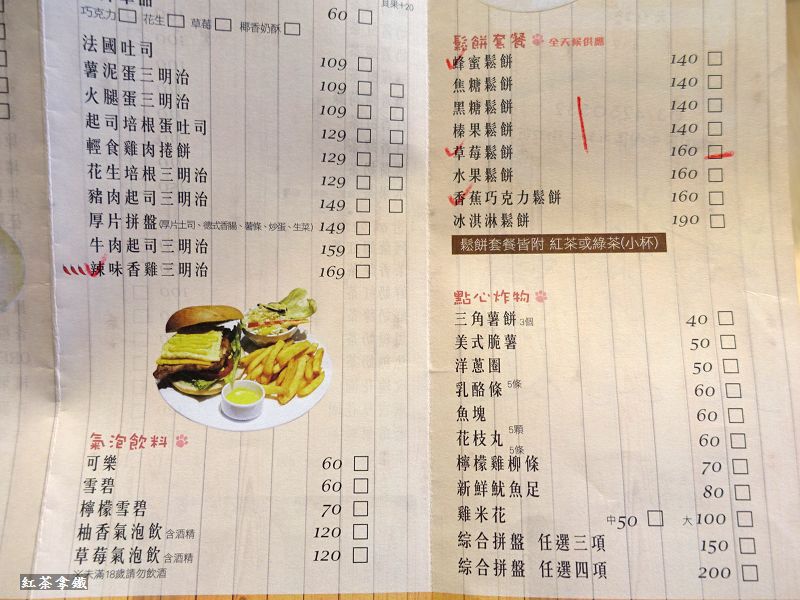 巧克力 □ 花生 □ 草莓 □ 椰香奶酥 □ 60 □ 貝果+20
法國吐司 109 □
薯泥蛋三明治 109 □ □
火腿蛋三明治 109 □ □
起司培根蛋吐司 129 □ □
輕食雞肉捲餅 129 □ □
花生培根三明治 129 □ □
豬肉起司三明治 149 □ □
厚片拼盤(厚片土司、德式香腸、薯條、炒蛋、生菜) 149 □
牛肉起司三明治 159 □
辣味香雞三明治 169 □
氣泡飲料
可樂 60 □
雪碧 60 □
檸檬雪碧 70 □
柚香氣泡飲 含酒精 120 □
草莓氣泡飲 含酒精 120 □
※未滿18歲請勿飲酒
鬆餅套餐 全天候供應
蜂蜜鬆餅 140 □
焦糖鬆餅 140 □
黑糖鬆餅 140 □
榛果鬆餅 140 □
草莓鬆餅 160 □
水果鬆餅 160 □
香蕉巧克力鬆餅 160 □
冰淇淋鬆餅 190 □
鬆餅套餐皆附 紅茶或綠茶(小杯)
點心炸物
三角薯餅 3個 40 □
美式脆薯 50 □
洋蔥圈 50 □
乳酪條 5條 60 □
魚塊 60 □
花枝丸 5顆 60 □
檸檬雞柳條 5條 70 □
新鮮魷魚足 80 □
雞米花 中50 □ 大100 □
綜合拼盤 任選三項 150 □
綜合拼盤 任選四項 200 □
紅茶拿鐵